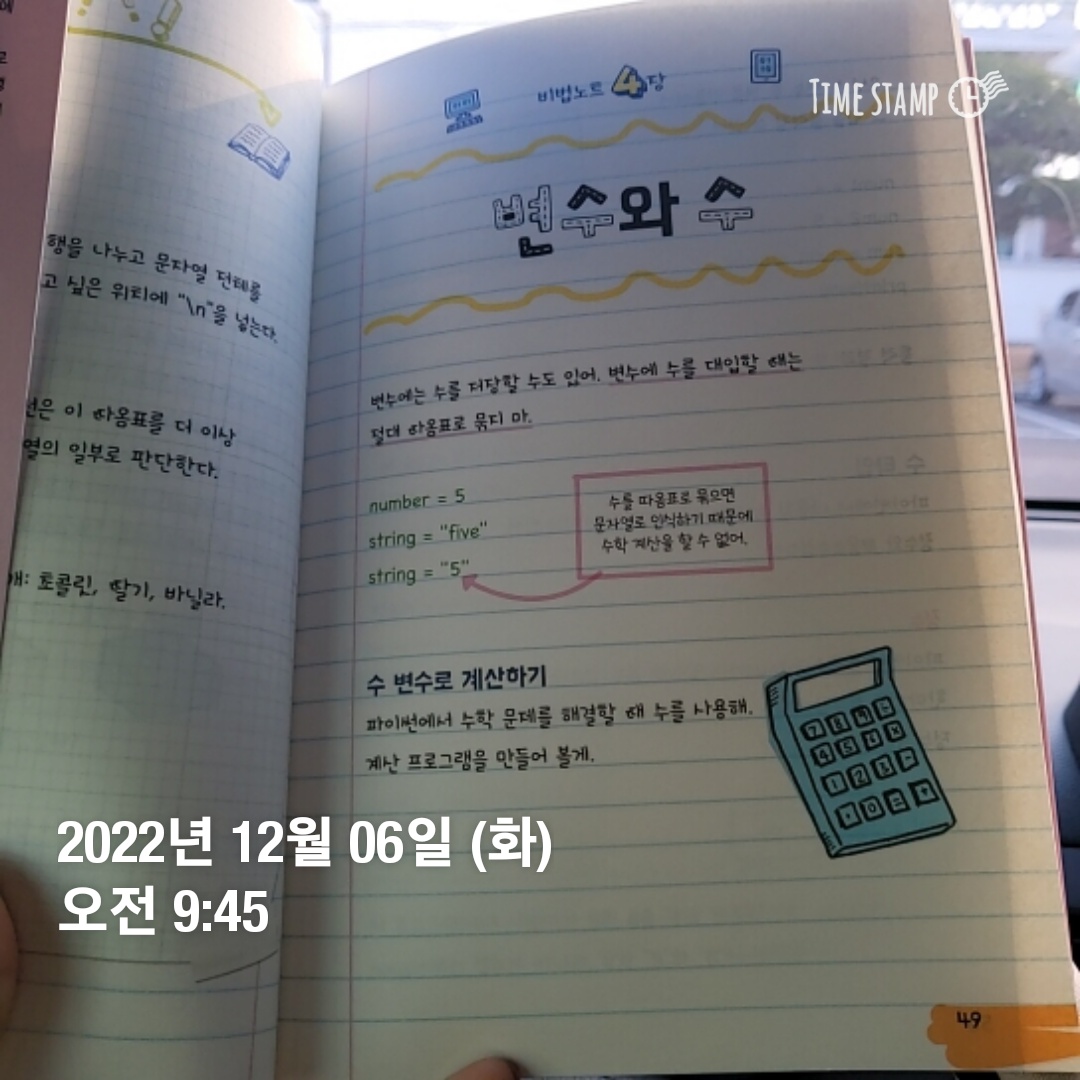 행을 나누고 문자열 전체를
고 싶은 위치에 "\n"을 넣는다.
은 이 따옴표를 더 이상
열의 일부로 판단한다.
초콜릿, 딸기, 바닐라.
비법노트 4장
TIME STAMP
변수와 수
변수에는 수를 저장할 수도 있어. 변수에 수를 대입할 때는
절대 따옴표로 묶지 마.
number = 5
string = "five"
string = "5"
수를 따옴표로 묶으면
문자열로 인식하기 때문에
수학 계산을 할 수 없어.
수 변수로 계산하기
파이썬에서 수학 문제를 해결할 때 수를 사용해.
계산 프로그램을 만들어 볼게.
2022년 12월 06일 (화)
오전 9:45
49